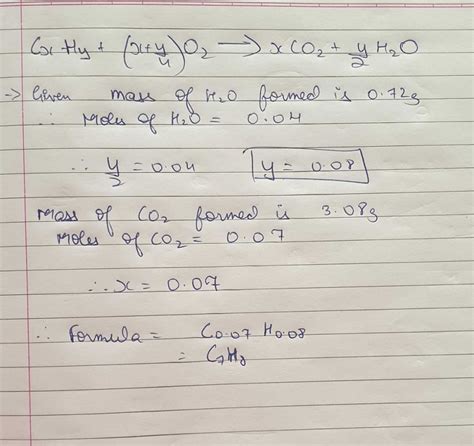 CxHy + (x+y/4)O2 → xCO2 + y/2 H2O
→ Given mass of H2O formed is 0.72g
∴ Moles of H2O = 0.04
∴ y/2 = 0.04 y = 0.08
Mass of CO2 formed is 3.08g
Moles of CO2 = 0.07
∴ x = 0.07
∴ Formula = C0.07 H0.08
= C7H8